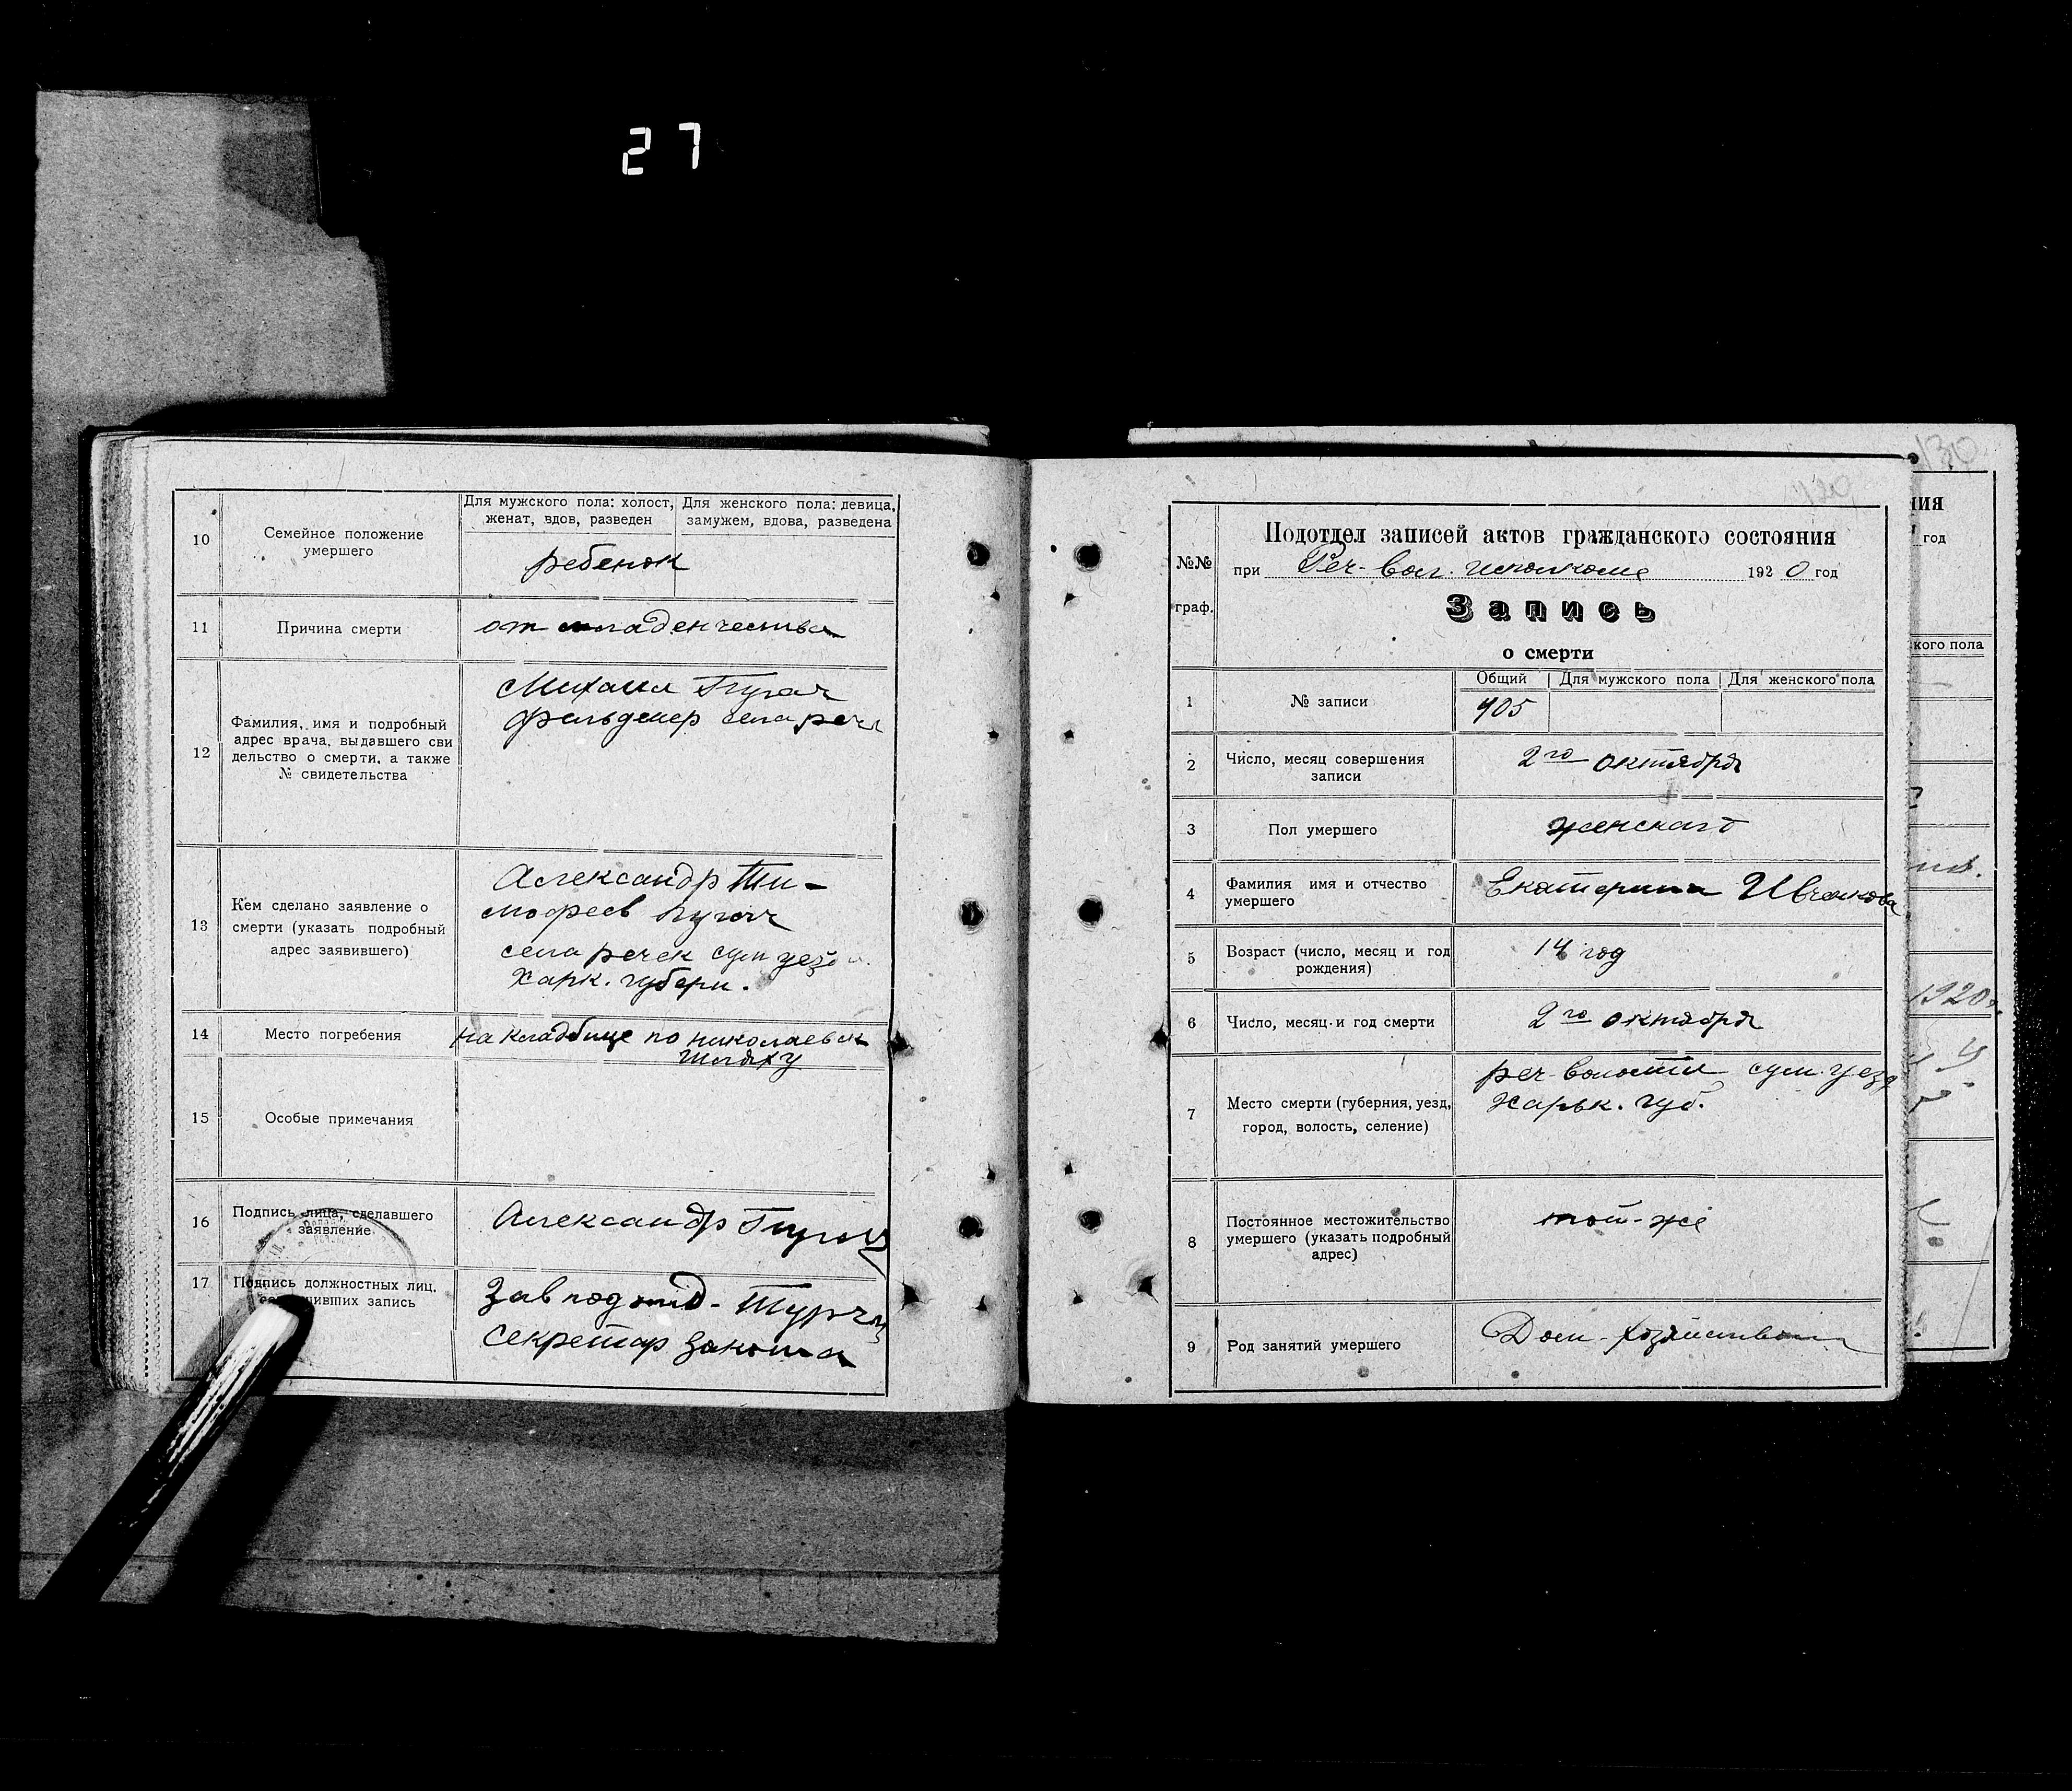 27
10
Семейное положение
умершего
Для мужского пола: холост,
женат, вдов, разведен
Для женского пола: девица,
замужем, вдова, разведена
ребенок
11
Причина смерти
от младенчества
12
Фамилия, имя и подробный
адрес врача, выдавшего сви
дельство о смерти, а также
№ свидетельства
Михаил Пугач
фельдшер села реч
13
Кем сделано заявление о
смерти (указать подробный
адрес заявившего)
Александр Ти-
мофеев Пугач
села речек сум уезд
Харк. губерн.
14
Место погребения
на кладбище по николаевск
шляху
15
Особые примечания
16
Подпись лица, сделавшего
заявление
Александр Пугач
17
Подпись должностных лиц,
запись
Зав подотд.
Секретар
130
Подотдел записей актов гражданского состояния
№№
граф.
при Реч- вол. исполкоме 1920 год
Запись
о смерти
1
№ записи
Общий
Для мужского пола
Для женского пола
405
2
Число, месяц совершения
записи
2го октября
3
Пол умершего
женскаго
4
Фамилия имя и отчество
умершего
Екатерина Ивченкова
5
Возраст (число, месяц и год
рождения)
14 год
6
Число, месяц и год смерти
2го октября
7
Место смерти (губерния, уезд,
город, волость, селение)
реч- волости сум. уезд
Харьк. губ.
8
Постоянное местожительство
умершего (указать подробный
адрес)
той-же
9
Род занятий умершего
Дом-хозяйством
ния
год
кого пола
1920